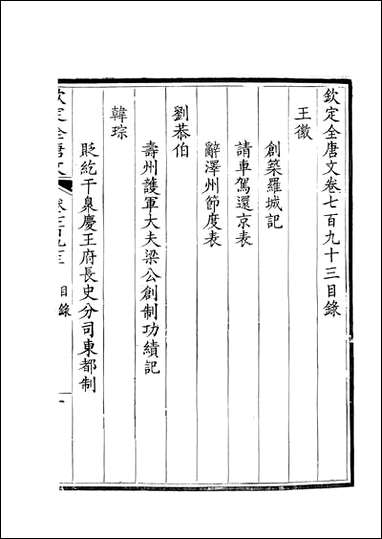 欽定全唐文卷七百九十三目錄
王徽
創築羅城記
請車駕還京表
辭澤州節度表
劉恭伯
壽州護軍大夫梁公創制功績記
韓琮
貶紇干臮慶王府長史分司東都制
欽定全唐文
目錄